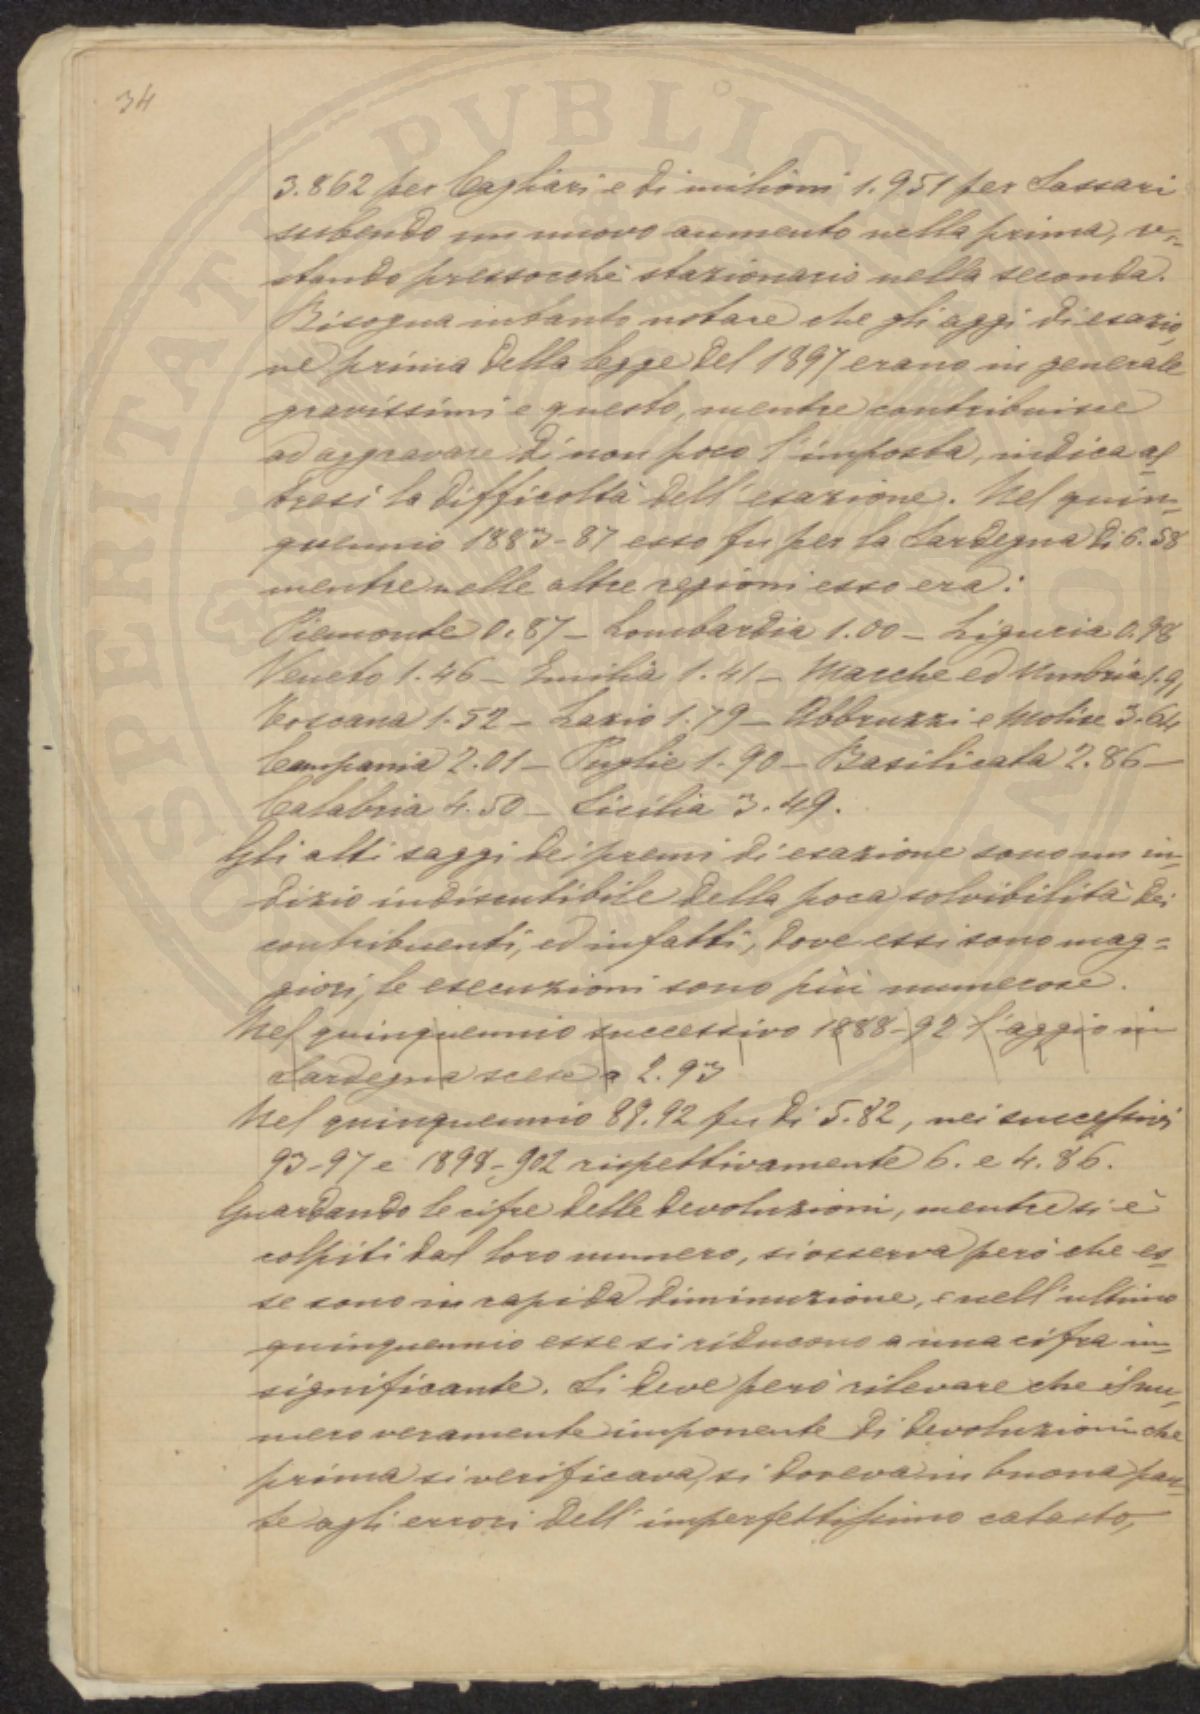 34
3.862 per Cagliari e di milioni 1.951 per Sassari
subendo un nuovo aumento nella prima, re-
stando pressocchè stazionario nella seconda.
Bisogna intanto notare che gli aggi di esazio-
ne prima della legge del 1897 erano in generale
gravissimi e questo, mentre contribuisce
ad aggravare di non poco l'imposta, indica al-
tresì la difficoltà dell'esazione. Nel quin-
quennio 1883-87 esso fu per la Sardegna di 6.58
mentre nelle altre regioni esso era:
Piemonte 0.87 – Lombardia 1.00 – Liguria 0.98
Veneto 1.46 – Emilia 1.41 – Marche ed Umbria 1.91
Toscana 1.52 – Lazio 1.79 – Abbruzzi e Molise 3.64
Campania 2.01 – Puglie 1.90 – Basilicata 2.86 –
Calabria 4.50 – Sicilia 3.49.
Gli alti saggi dei premi di esazione sono un in-
dizio indiscutibile della poca solvibilità dei
contribuenti, ed infatti, dove essi sono mag-
giori, le esecuzioni sono più numerose.
Nel quinquennio successivo 1888-92 l'aggio in
Sardegna scese a 2.93
Nel quinquennio 88.92 fu di 5.82, nei successivi
93-97 e 1898-902 rispettivamente 6. e 4.86.
Guardando le cifre delle devoluzioni, mentre si è
colpiti dal loro numero, si osserva però che es-
se sono in rapida diminuzione, e nell'ultimo
quinquennio esse si riducono a una cifra in-
significante. Si deve però rilevare che il nu-
mero veramente imponente di devoluzioni che
prima si verificava, si doveva in buona par-
te agli errori dell'imperfettissimo catasto,
SPERITATI PVBLICAE